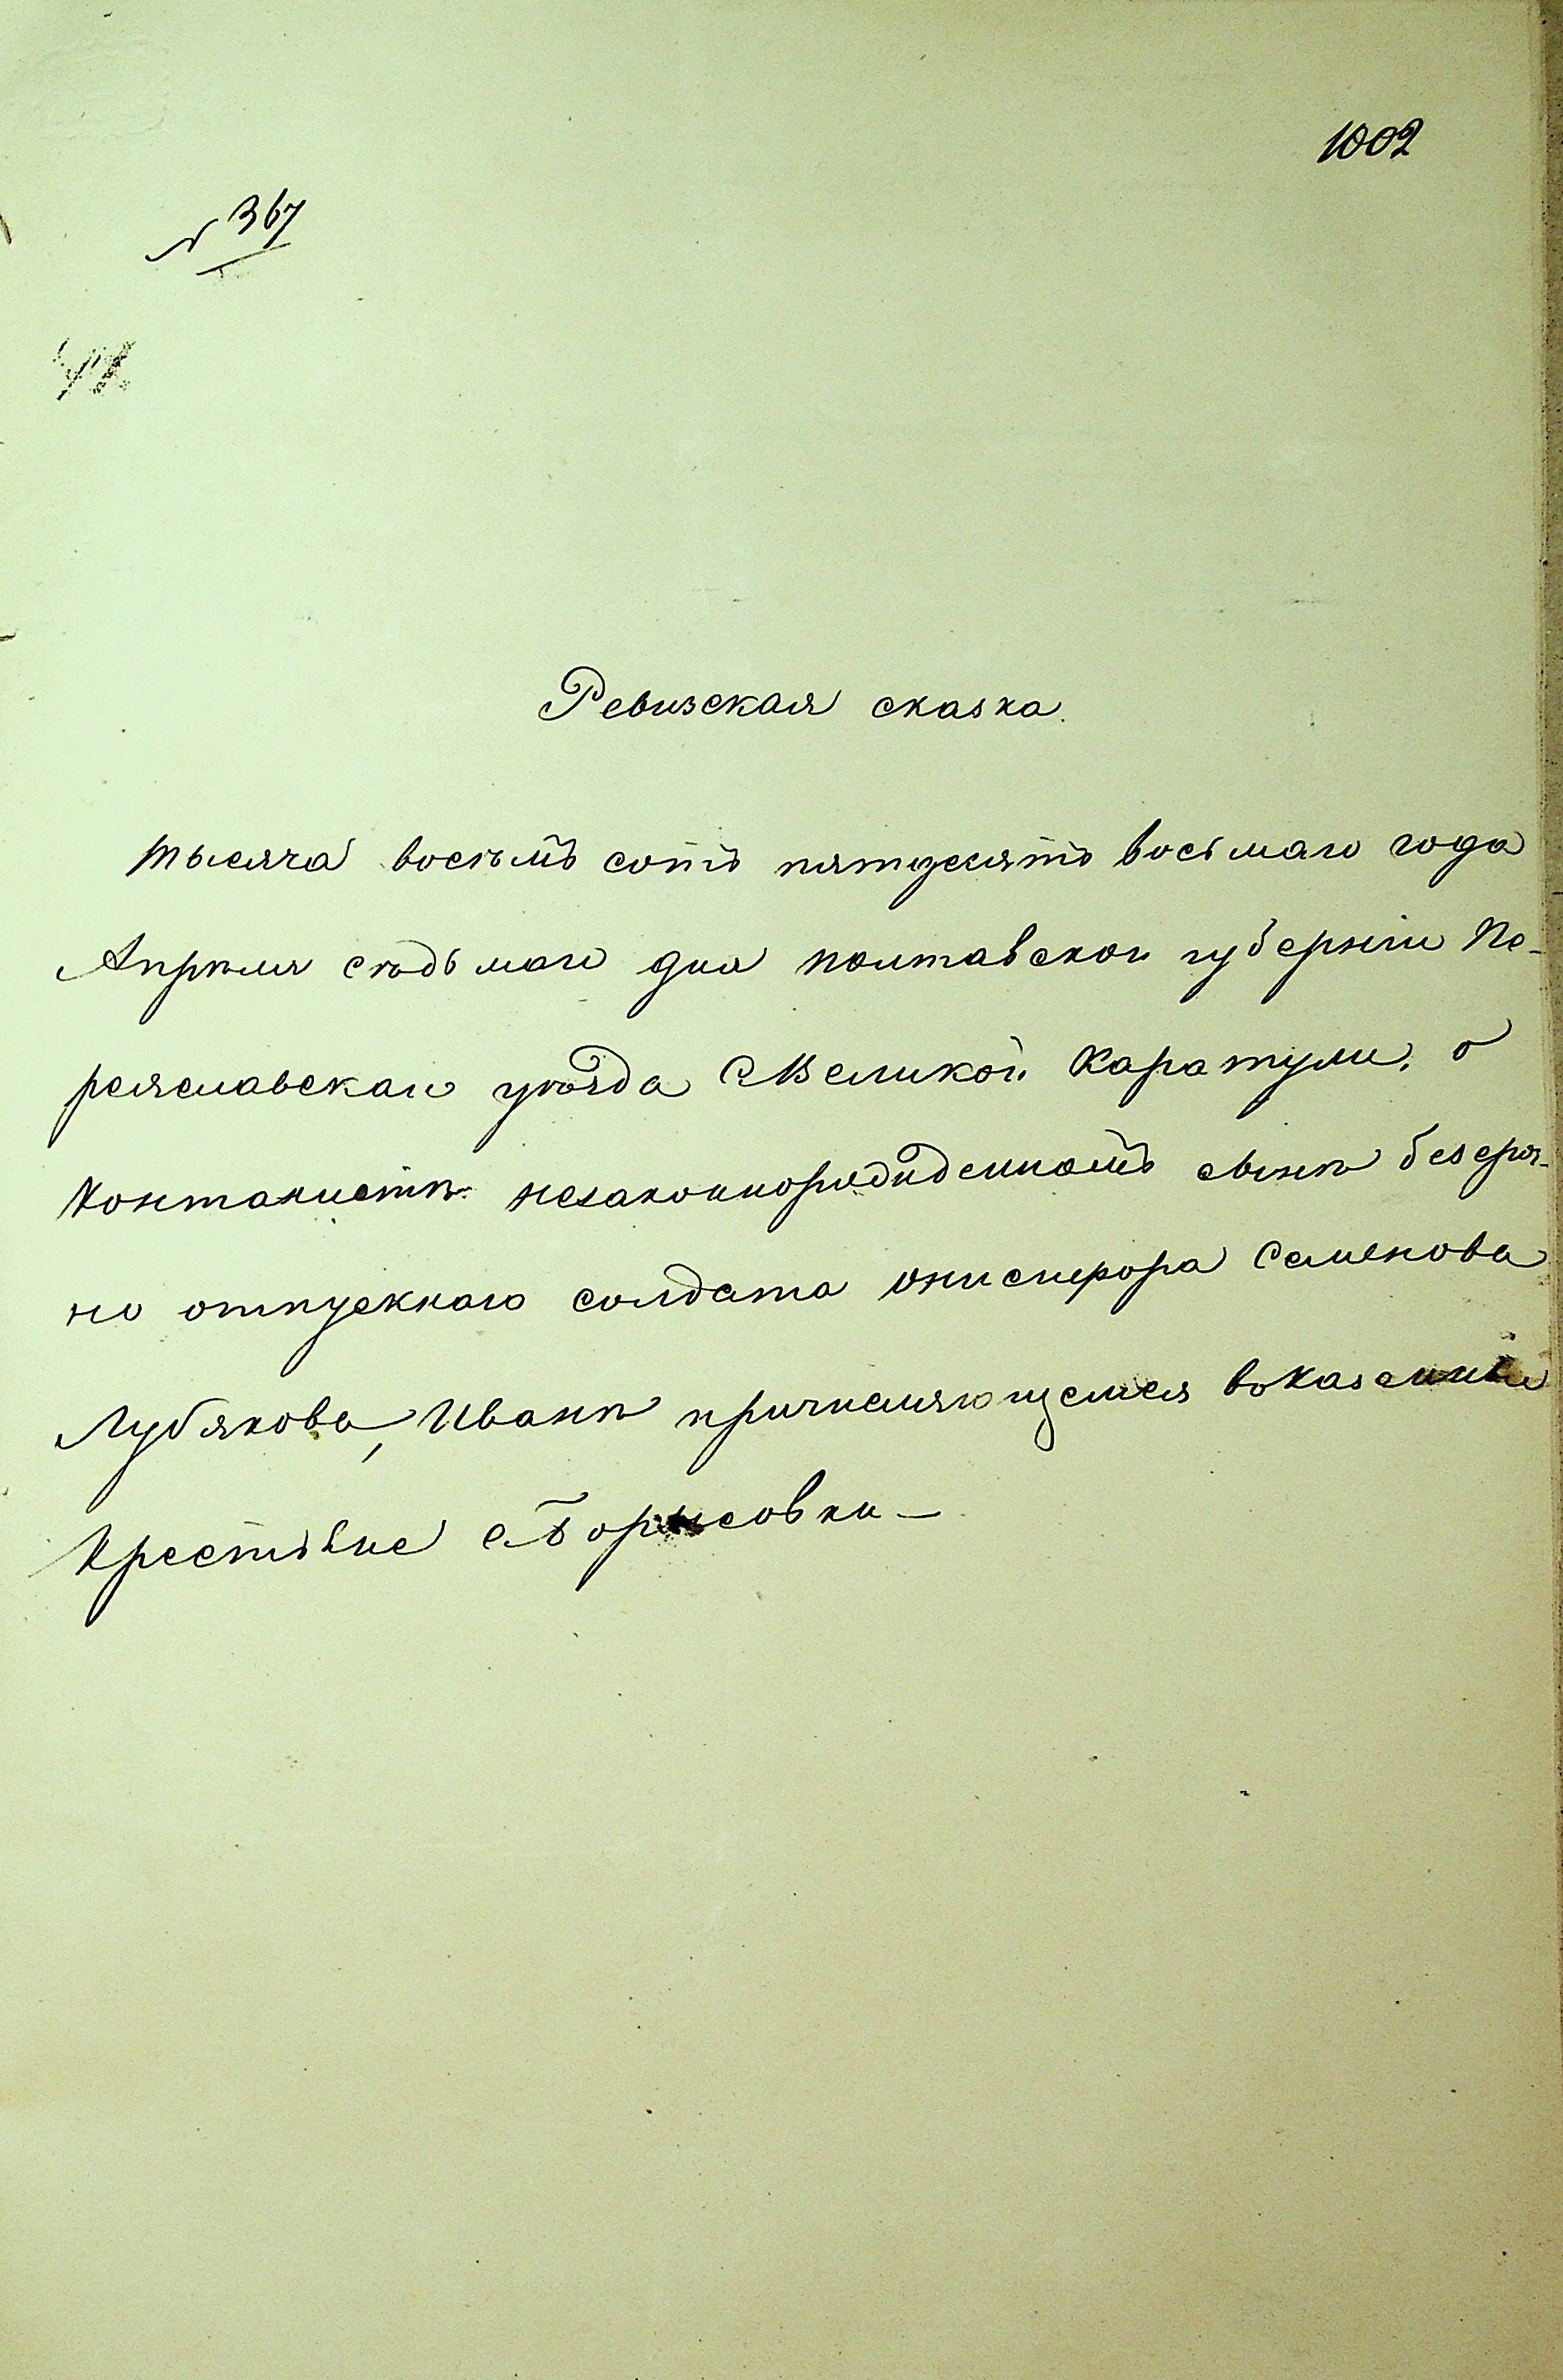 1002
№ 367
Ревизская сказка.
Тысяча восѣмъ сотъ пятдесятъ восьмаго года
Апрѣля сѣдьмаго дня полтавской губерніи Пе-
реяславскаго уѣзда С Великой Каратули, о
Контанистѣ незаконнорожденномъ сынѣ безсроч-
но отпускнаго солдата Онисифора Семенова
Лубякова, Иванѣ причисляющемся вьказенніи
Крестьяне с Борисовки –